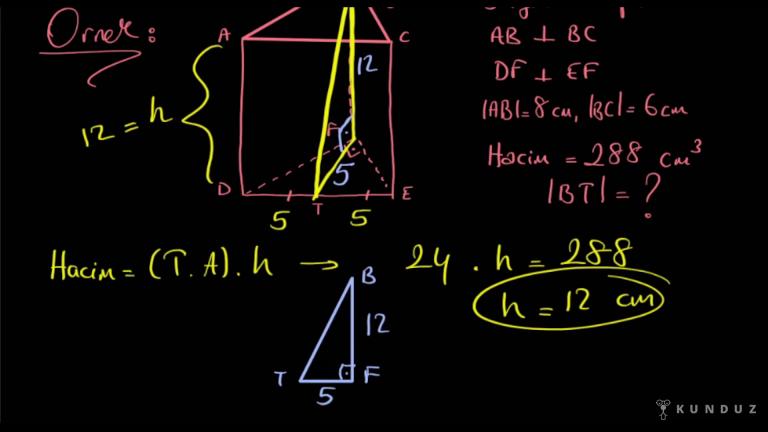 Örnek:
A
C
12
12 = h
F
5
D
T
E
5
5
AB ⊥ BC
DF ⊥ EF
|AB|=8cm, |BC|=6cm
Hacim = 288 cm³
|BT|= ?
Hacim = (T.A).h → 24 . h = 288
h = 12 cm
B
12
T
F
5
KUNDUZ